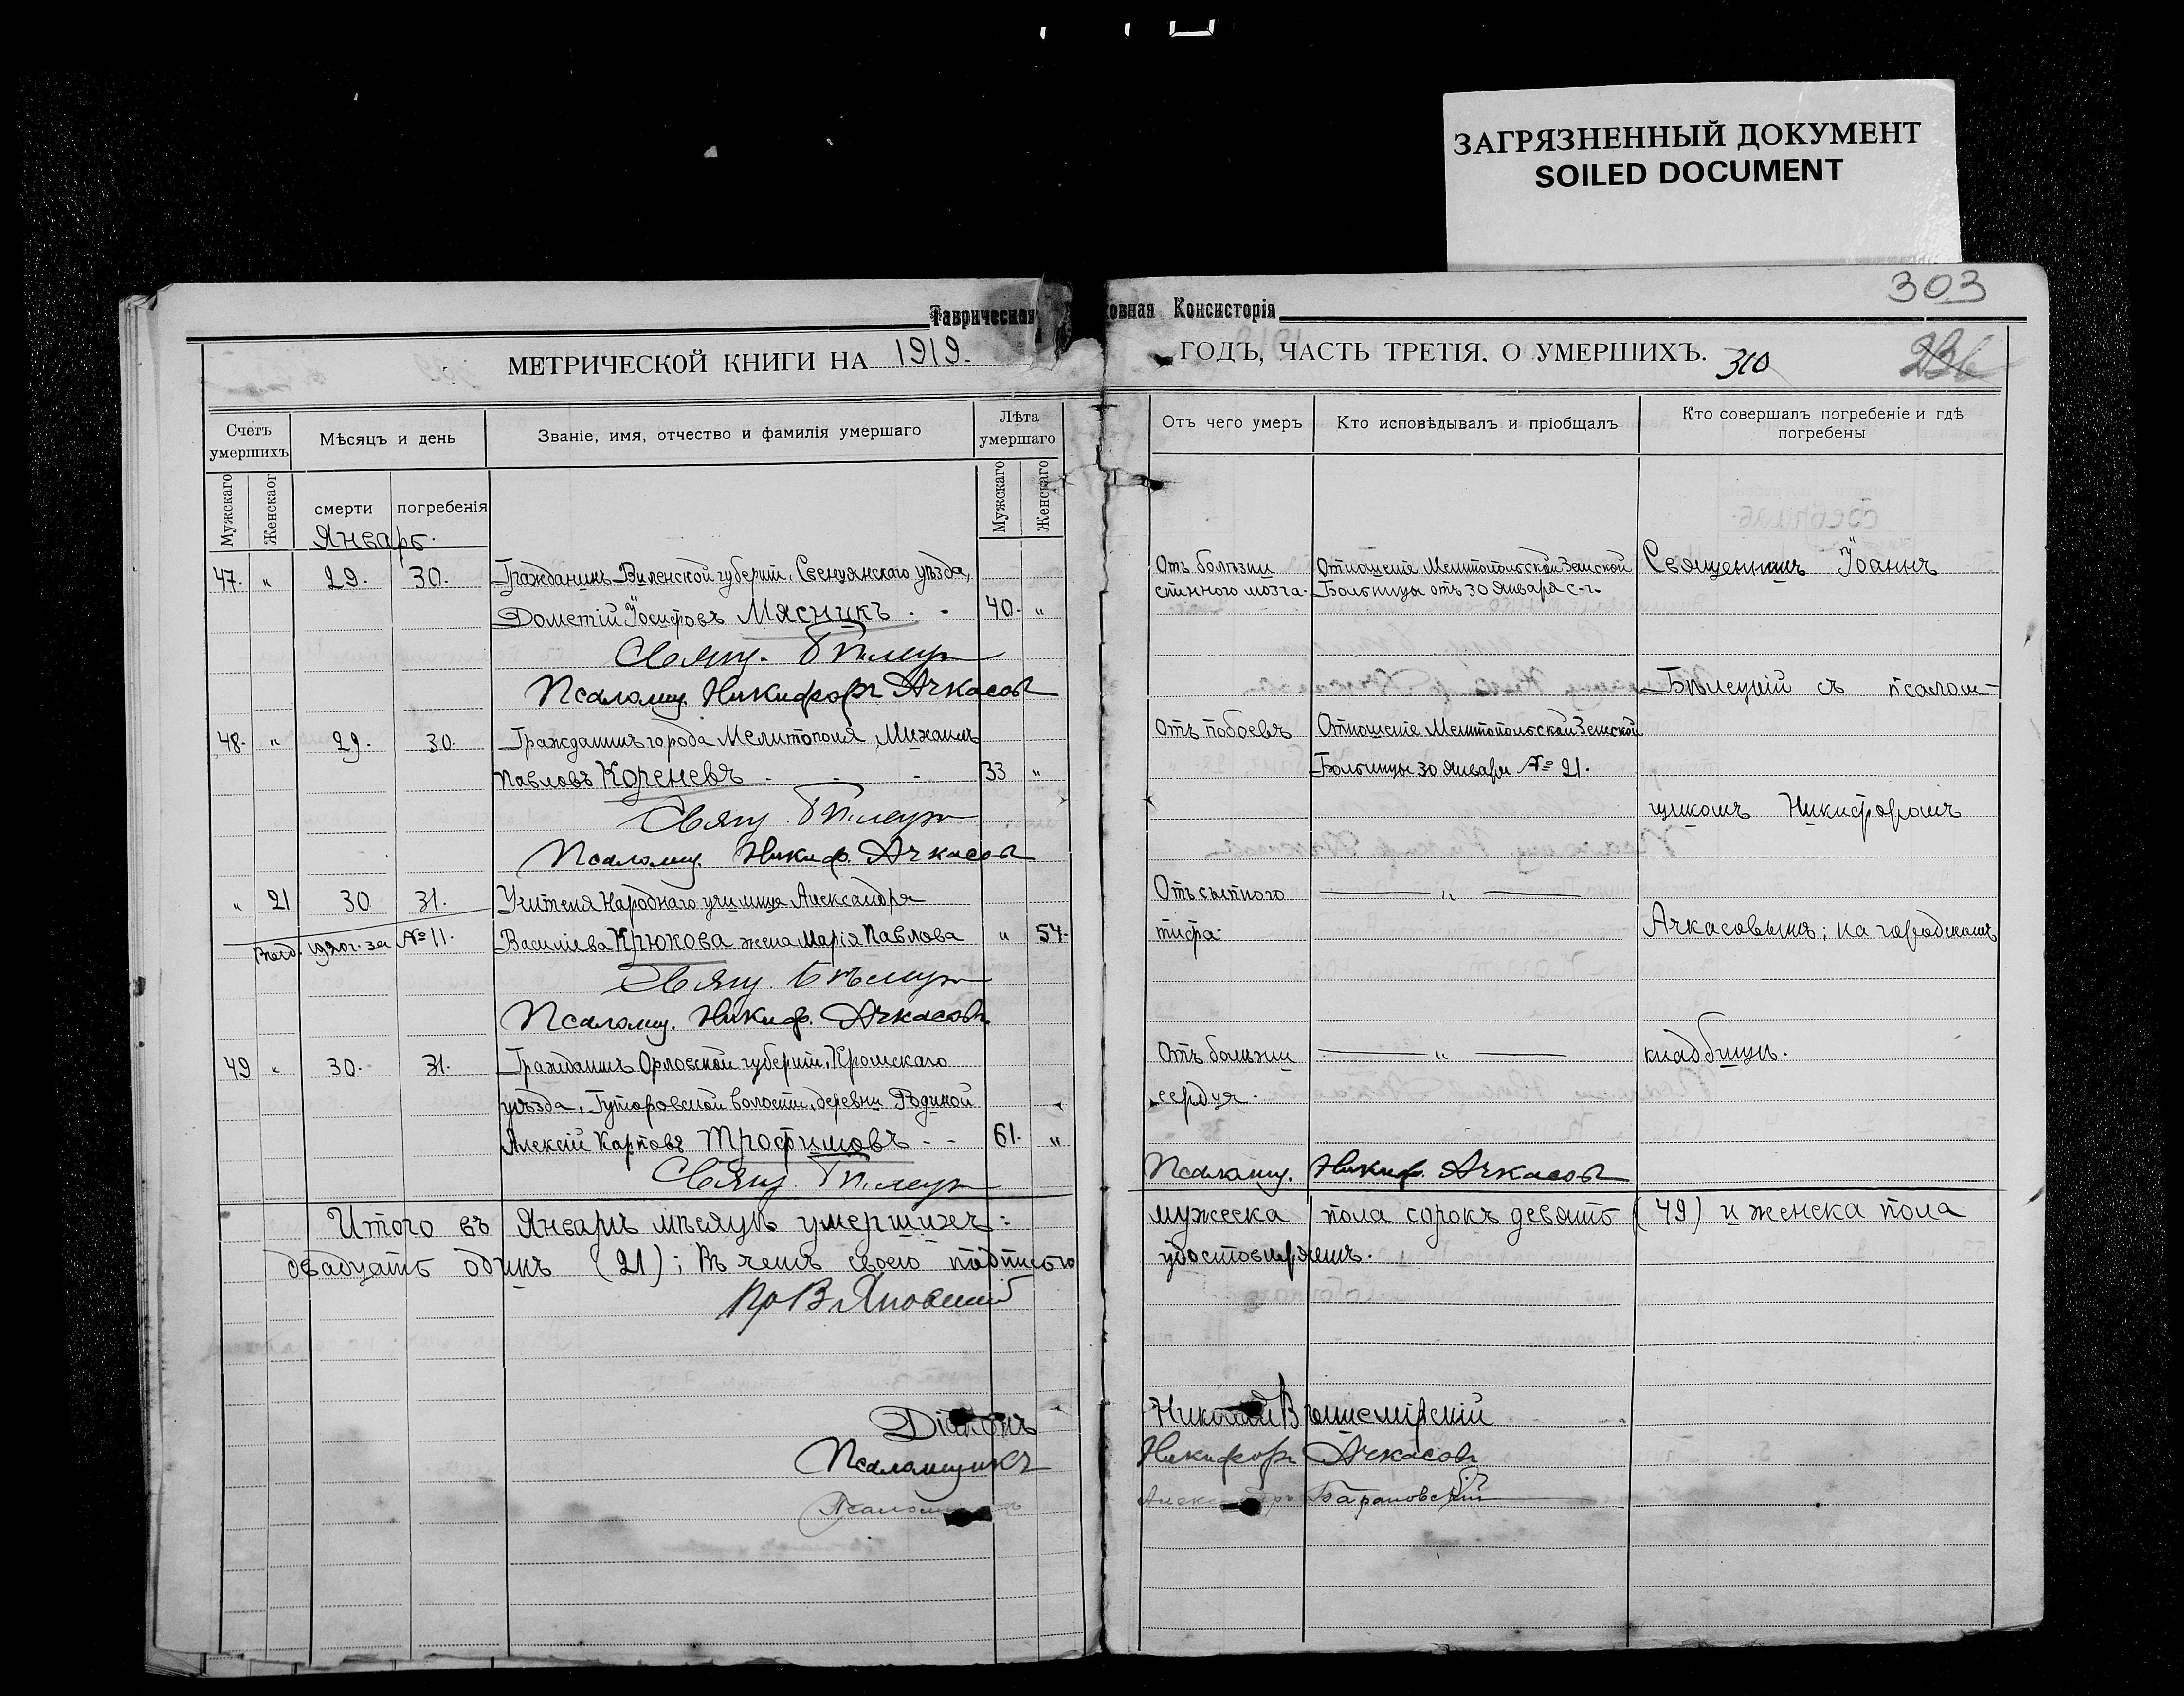 ЗАГРЯЗНЕННЫЙ ДОКУМЕНТ
SOILED DOCUMENT
303
Таврическая
овная Консисторія
МЕТРИЧЕСКОЙ КНИГИ НА 1919.
ГОДЪ, ЧАСТЬ ТРЕТІЯ. О УМЕРШИХЪ.
310
236
Счетъ умершихъ
Мѣсяцъ и день
Званіе, имя, отчество и фамилія умершаго
Лѣта умершаго
Мужскаго
Женскаог
смерти
погребенія
Мужскаго
Женскаго
Январь.
47. " 29. 30. Гражданинъ Виленской губерніи, Свенцянскаго уѣзда,
Дометій Іосифовъ Мясникъ 40. "
Свящ. Бѣлецк
Псаломщ. Никифоръ Ачкасовъ
48. " 29. 30. Гражданинъ города Мелитополя Михаилъ
Павловъ Кореневъ 33 "
Свящ. Бѣлецк
Псаломщ. Никиф. Ачкасовъ
" 21 30 31. Учителя Народнаго училища Александра
Выд. 1920 г. за № 11. Василіева Крюкова жена Марія Павлова " 54.
Свящ. Бѣлецк
Псаломщ. Никиф. Ачкасовъ
49 " 30. 31. Гражданинъ Орловской губерніи, Кромскаго
уѣзда, Гуторовской волости, деревни Родиной
Алексій Карповъ Трофимовъ 61. "
Свящ. Бѣлецк
Итого въ Январѣ мѣсяцѣ умершихъ:
двадцать одинъ (21); въ чемъ своею подписью
Діаконъ
Псаломщикъ
Псаломщикъ
Отъ чего умеръ
Кто исповѣдывалъ и пріобщалъ
Кто совершалъ погребеніе и гдѣ погребены
Отъ болѣзни Отношеніе Мелитопольской Земской Священникъ Іоаннъ
спинного мозга. Больницы отъ 30 Января с.г.
Бѣлецкій съ псалом-
Отъ побоевъ Отношеніе Мелитопольской Земской
Больницы 30 Января № 21.
щикомъ Никифоромъ
Отъ сыпного — " —
тифа. Ачкасовымъ; на городскомъ
Отъ болѣзни — " — кладбищѣ.
сердца.
Псаломщ. Никиф. Ачкасовъ
мужеска пола сорокъ девять (49) и женска пола
удостовѣряемъ.
Николай Вышемірскій
Никифоръ Ачкасовъ
Александръ Барановскій